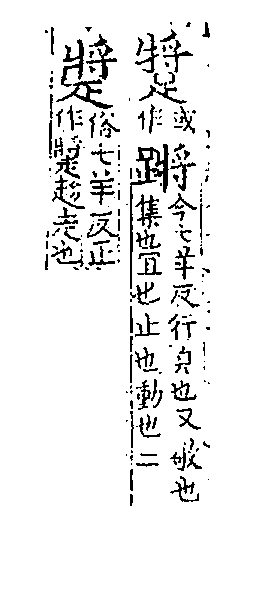 或
作
蹡
今七羊反行皃也又敬也
集也宜也止也動也二
俗七羊反正
作趍走也